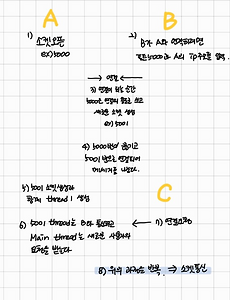 A
B
1) 소켓오픈
ex) 5000
2) B가 A와 연결하려면
포트5000과 A의 Ip주소를 알아야
→ 연결 ←
3) 연결이 되는 순간
5000은 연결의 용도로 쓰고
새로운 소켓 생성
ex) 5001
4) 5000번은 끊기고
5001번으로 연결되어
메세지를 나눈다.
5) 5001 소켓생성과
함께 thread 1 생성
C
6) 5001 thread는 B와 통신하고
Main thread는 새로운 사용자의
요청을 받는다
← 7) 연결요청
8) 위의 과정을 반복 → 소켓통신